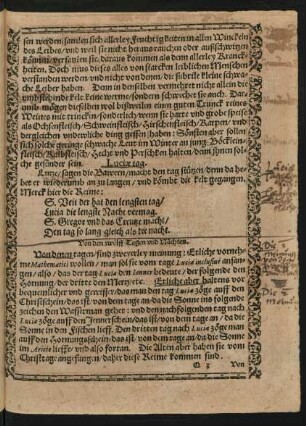 sen werden/sonden sich allerley Feuchtigkeiten in allen Winckeln
des Leibes/und weil sie nicht heraus rauchen oder ausschwitzen
können/versauren sie/daraus kommen als denn allerley Kranck-
heiten. Doch mus dieses alles von starcken leiblichen Menschen
verstanden werden/und nicht von denen/die subtile kleine schwa-
che Leiber haben. Denn in denselben vermehret nicht allein die
kleine wärme/sondern schwechet sie auch. Dar-
umb mögen dieselben wol bisweilen einen guten Trunck reines
Weines mit trincken/sonderlich wenn sie harte und grobe speise
als Ochsenfleisch/Schweinefleisch/Hirschenfleisch/Karpen/und
dergleichen underliche ding gessen haben: Sonsten aber sollen
sich solche geringe schwache Leut im Winter an jung Böcklein-
fleisch/Kalbfleisch/Hecht und Perschken halten/denn ihnen sol-
che gesünder sein. Lucie tag.
Lutze/sagen die Bawren/macht den tag stützen/denn da he-
bet er wiederumb an zu langen/und kömbt die kelt gegangen.
Merck hier die Reime:
S. Veit der hat den lengsten tag/
Lucia die lengste Nacht vermag.
S. Gregor und das Creutze macht/
Den tag so lang gleich als die nacht.
Von den zwölff Tagen und Nächten.
Von denen tagen/sind zweyerley meinung: Etliche vorneh-
me Mathematici wollen/man sol sie vom tage Lucia inclusive anfan-
gen/also/das der tag Luciæ den Jenner bedeute/der folgende den
Hornung/der dritte den Mertz etc. Etliche aber haltens vor
bequemlicher und gewisser/das man den tag Luciæ zöge auff den
Christschein/das ist/von dem tage an/da die Sonne ins folgende
zeichen den Wasserman gehet: und den nachfolgenden tag nach
Luciæ zöge auff den Jennerschein/das ist/von dem tage an/da die
Sonne in den Fischen lieff. Den dritten tag nach Luciæ zöge man
auff den Hornungschein/das ist/von dem tage an/da die Sonne
im Ariete lieffe/und also fortan. Die Alten aber haben sie vom
Christtage angefangen/daher diese Reime kommen sind.
Von